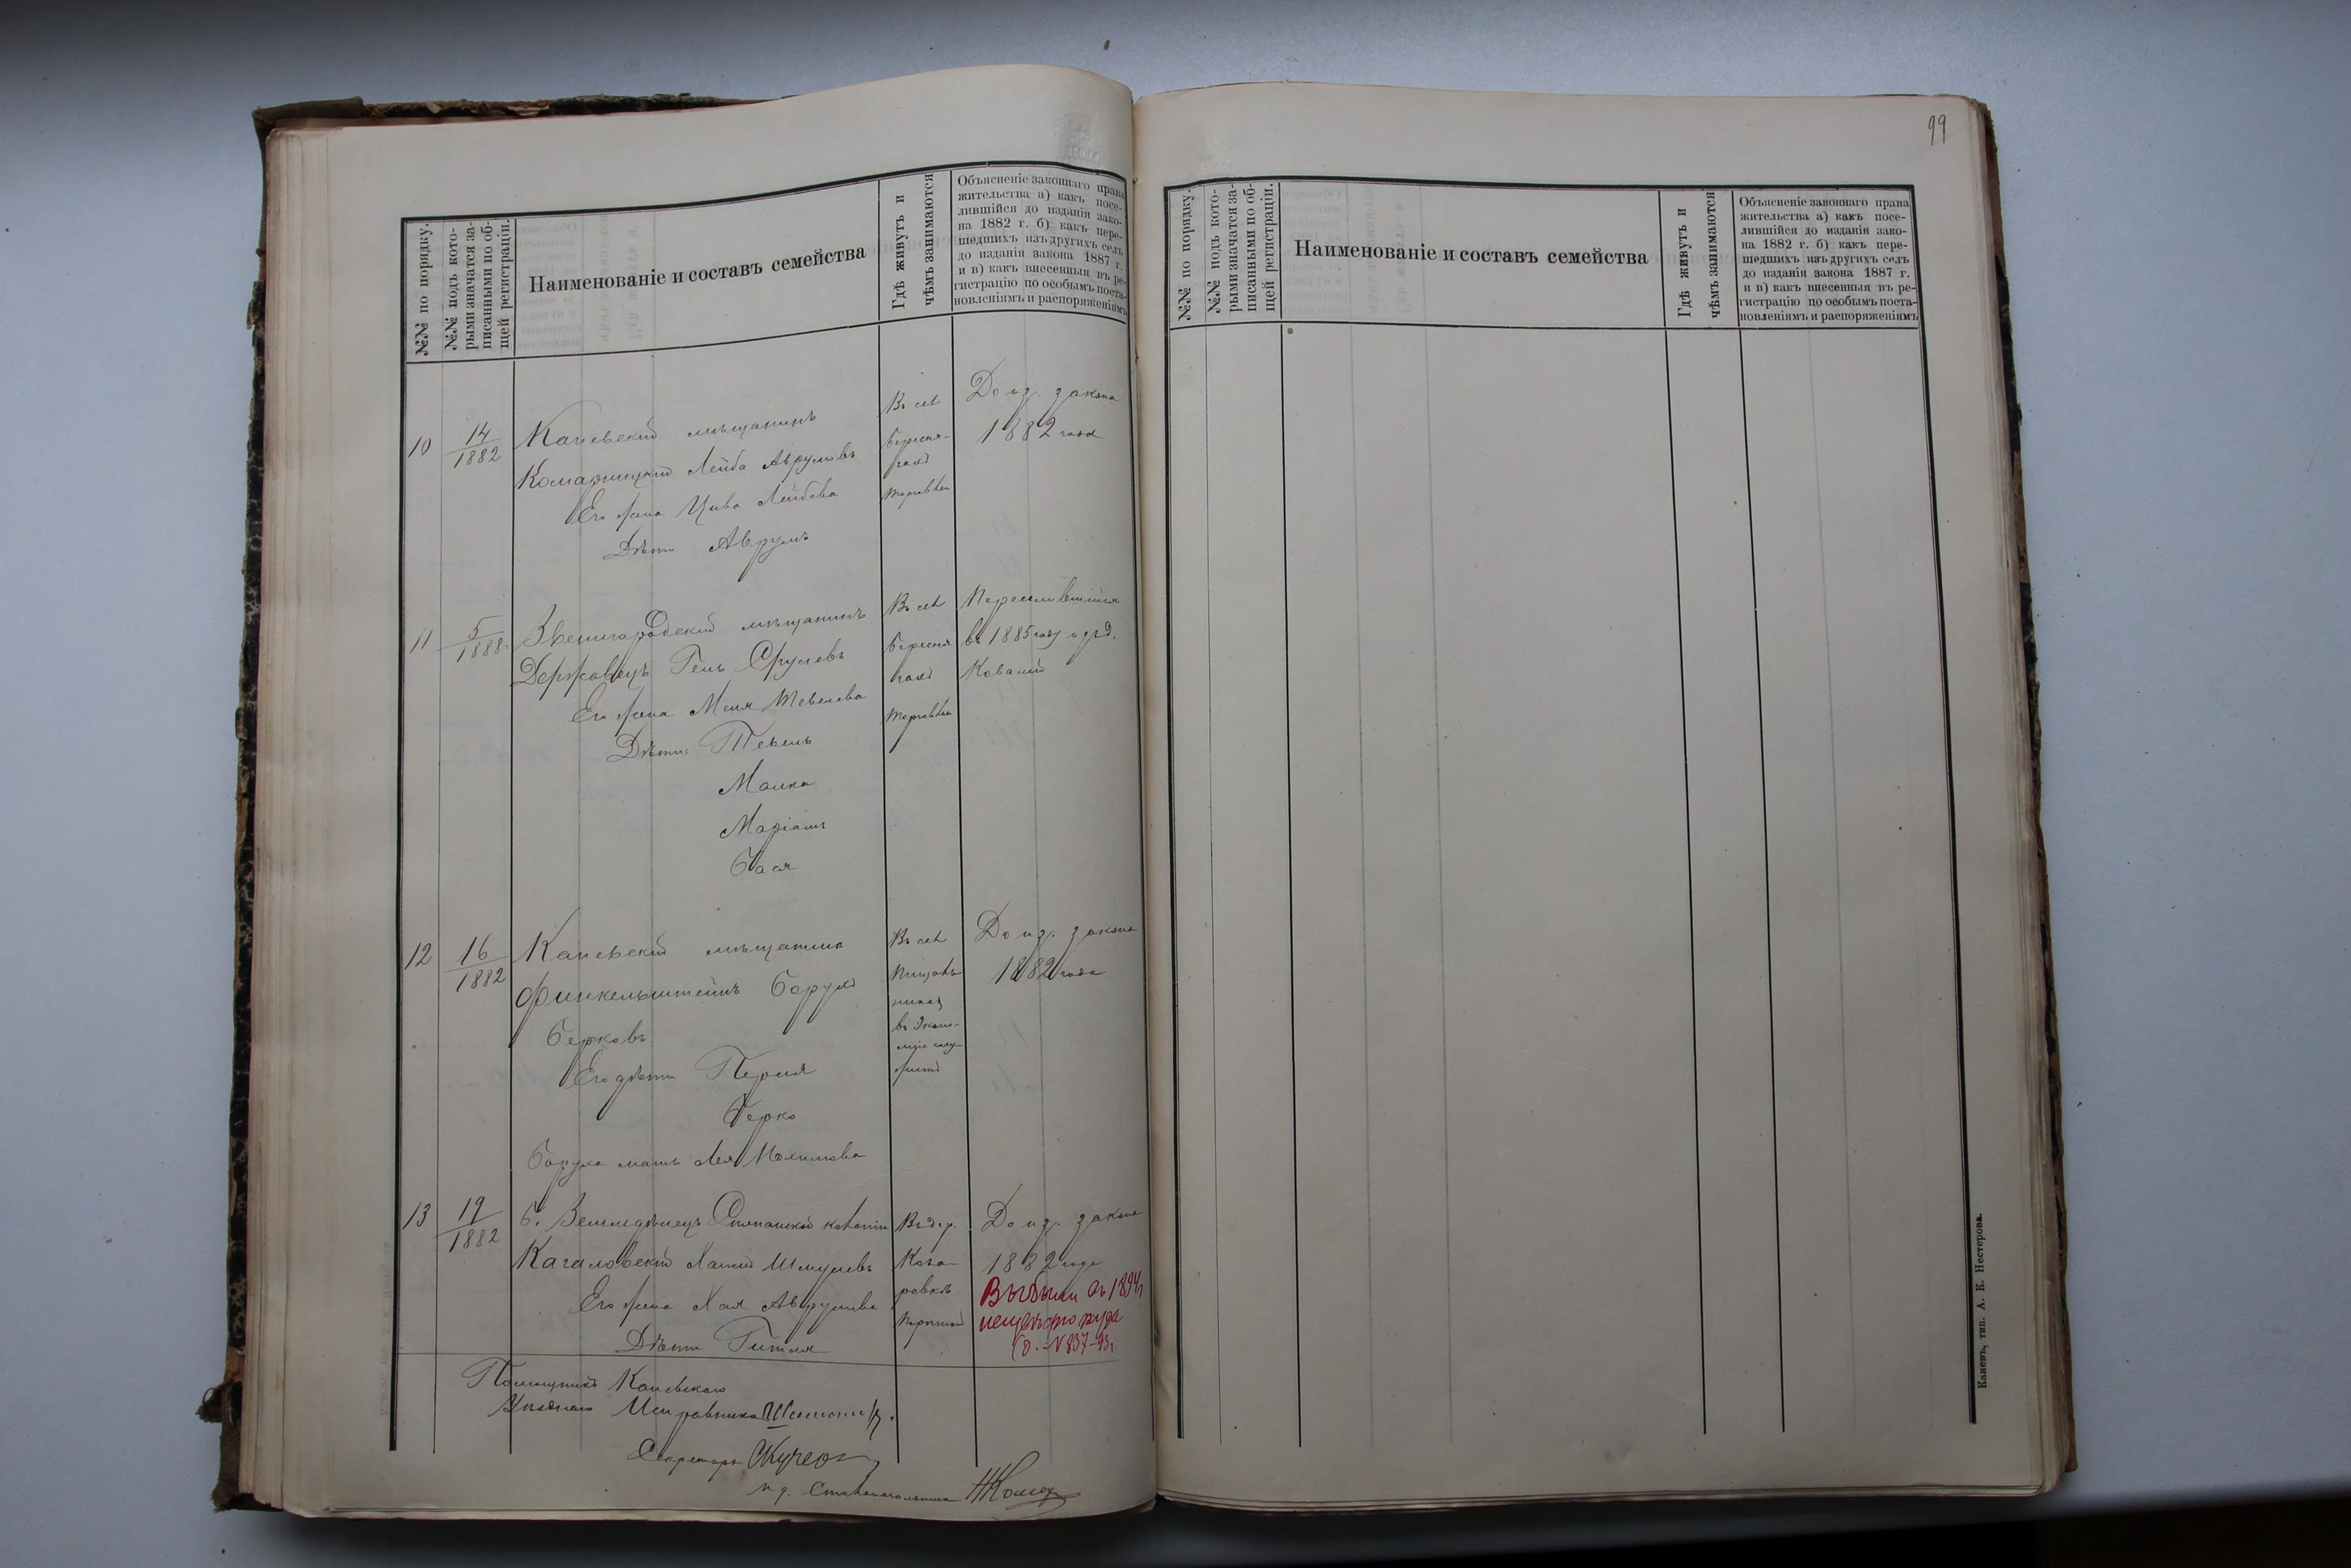 №№ по порядку.
№№ подъ кото-
рыми значатся за-
писанными по об-
щей регистраціи.
Наименованіе и составъ семейства
Гдѣ живутъ и
чѣмъ занимаются
Объясненіе законнаго права
жительства а) какъ посе-
лившійся до изданія зако-
на 1882 г. б) какъ пере-
шедшихъ изъ другихъ селъ
до изданія закона 1887 г.
и в) какъ внесенныя въ ре-
гистрацію по особымъ поста-
новленіямъ и распоряженіямъ
10
14
1882
Каневскій мѣщанинъ
Комарницкій Лейба Аврумовъ
Его жена Цива Лейбова
Дѣти Аврумъ
Въ сел
Березня-
гахъ
торговлей
До из. закона
1882 года
11
5
1888
Звенигородскій мѣщанинъ
Державецъ Гель Срулевъ
Его жена Меня Тевелева
Дѣти: Тевель
Малка
Маріамъ
Бася
Въ сел
Березня
гахъ
торговлей
Переселившійся
въ 1885 году изъ д.
Ковалей
12
16
1882
Каневскій мѣщанинъ
Финкельштейнъ Борухъ
Берковъ
Его дѣти Перля
Берко
Боруха мать Лея
Въ сел
Пищаль-
никахъ
въ Эконо-
міи слу-
житъ
До из. закона
1882 года
13
19
1882
б. Земледѣлецъ колоніи
Кагаловскій Хаимъ Шмулевъ
Его жена Хая Аврумова
Дѣти Гитля
Въ дер.
ровкѣ
До из. закона
1882 года
Выбыли въ 1894 г
№ 837-93 г.
Помощникъ Каневскаго
Уѣзднаго Исправника
Секретарь
И д. Столоначальника
99
№№ по порядку.
№№ подъ кото-
рыми значатся за-
писанными по об-
щей регистраціи.
Наименованіе и составъ семейства
Гдѣ живутъ и
чѣмъ занимаются
Объясненіе законнаго права
жительства а) какъ посе-
лившійся до изданія зако-
на 1882 г. б) какъ пере-
шедшихъ изъ другихъ селъ
до изданія закона 1887 г.
и в) какъ внесенныя въ ре-
гистрацію по особымъ поста-
новленіямъ и распоряженіямъ
Каневъ, тип. А. К. Нестерова.